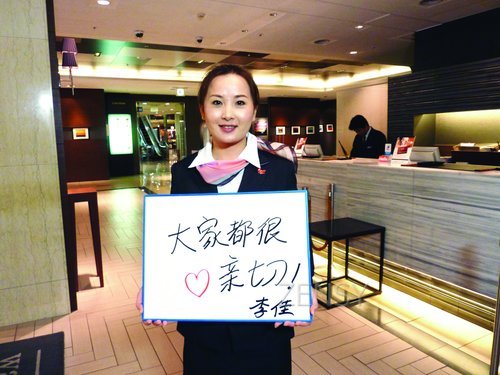 大家都很
♡亲切!
李佳